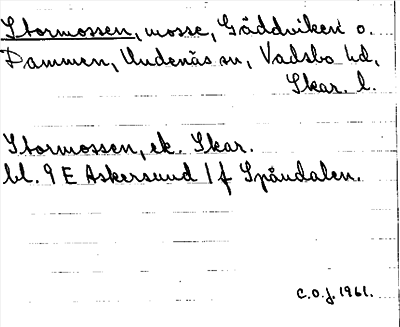 Stormossen, mosse, Gäddviken o.
Dammen, Undenäs sn, Vadsbo hd,
Skar. l.
Stormossen, ek. Skar.
bl. 9 E Askersund 1 f Spåndalen.
C.O.J. 1961.